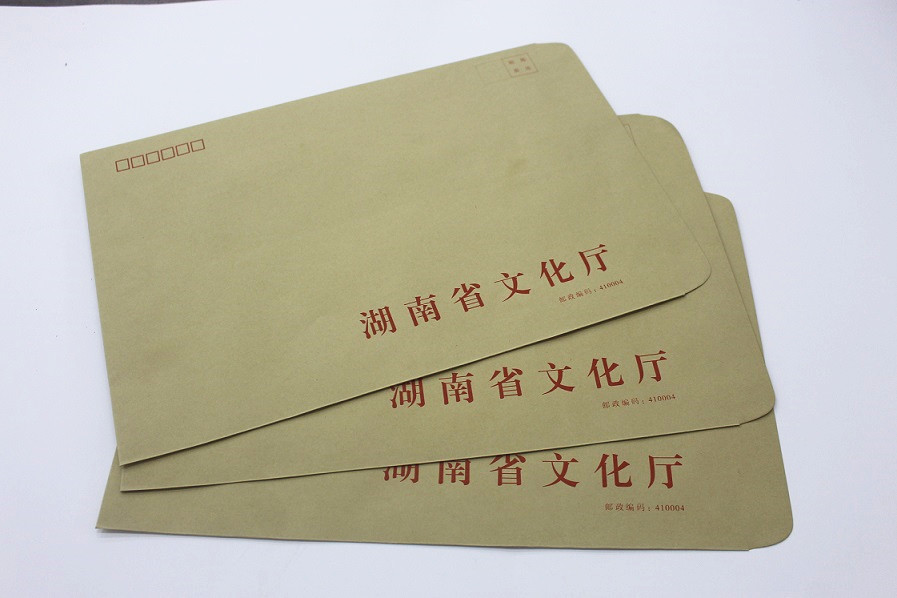 湖南省文化厅
邮政编码：410004
湖南省文化厅
邮政编码：410004
湖南省文化厅
邮政编码：410004